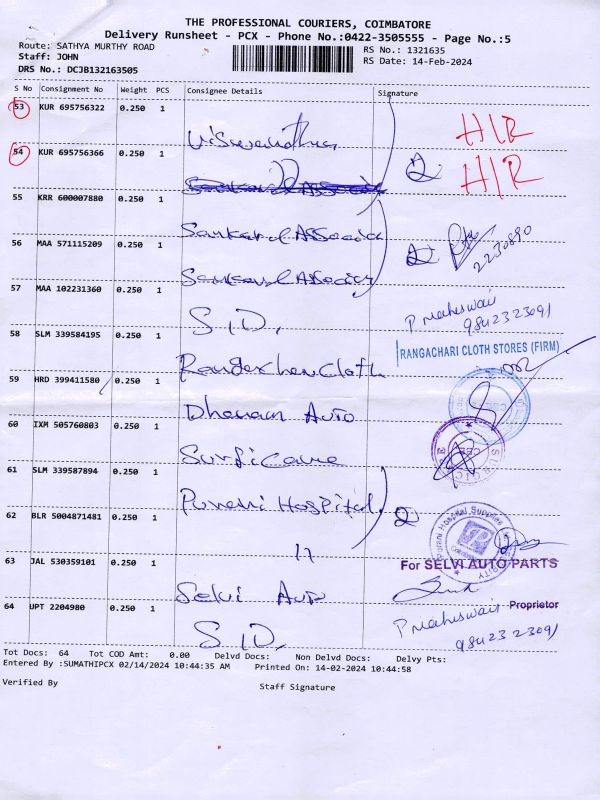 THE PROFESSIONAL COURIERS, COIMBATORE
Delivery Runsheet - PCX - Phone No.:0422-3505555 - Page No.:5
Route: SATHYA MURTHY ROAD
RS No.: 1321635
Staff: JOHN
RS Date: 14-Feb-2024
DRS No.: DCJB132163505
S No Consignment No Weight PCS Consignee Details Signature
53 KUR 695756322 0.250 1
H/R
54 KUR 695756366 0.250 1
2 H/R
55 KRR 600007880 0.250 1
Sankaral Associa
56 MAA 571115209 0.250 1
2 2230890
Sankaral Associa
57 MAA 102231360 0.250 1
S.I.D. P. Maheswari
9842323091
58 SLM 339584195 0.250 1
RANGACHARI CLOTH STORES (FIRM)
Cloth
59 HRD 399411580 0.250 1
Dhanam Auto
60 IXM 505760803 0.250 1
Surgicare
61 SLM 339587894 0.250 1
Purani Hospital 2
62 BLR 5004871481 0.250 1
Purani Hospital Supplies
11
For SELVI AUTO PARTS
63 JAL 530359101 0.250 1
Selvi Auto
Proprietor
64 UPT 2204980 0.250 1
S.I.D. P. Maheswari
9842323091
Tot Docs: 64 Tot COD Amt: 0.00 Delvd Docs: Non Delvd Docs: Delvy Pts:
Entered By :SUMATHIPCX 02/14/2024 10:44:35 AM Printed On: 14-02-2024 10:44:58
Verified By Staff Signature